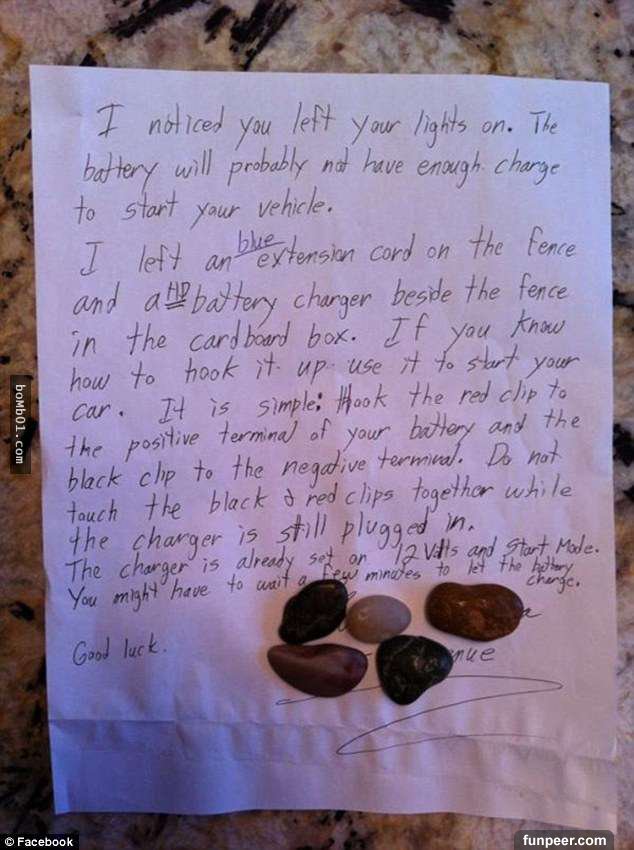 I noticed you left your lights on. The
battery will probably not have enough charge
to start your vehicle.
I left an blue extension cord on the fence
and a HD battery charger beside the fence
in the cardboard box. If you know
how to hook it up use it to start your
car. It is simple: Hook the red clip to
the positive terminal of your battery and the
black clip to the negative terminal. Do not
touch the black & red clips together while
the charger is still plugged in.
The charger is already set on 12 Volts and Start Mode.
You might have to wait a few minutes to let the battery
charge.
Good luck.
bomb01.com
© Facebook
funpeer.com